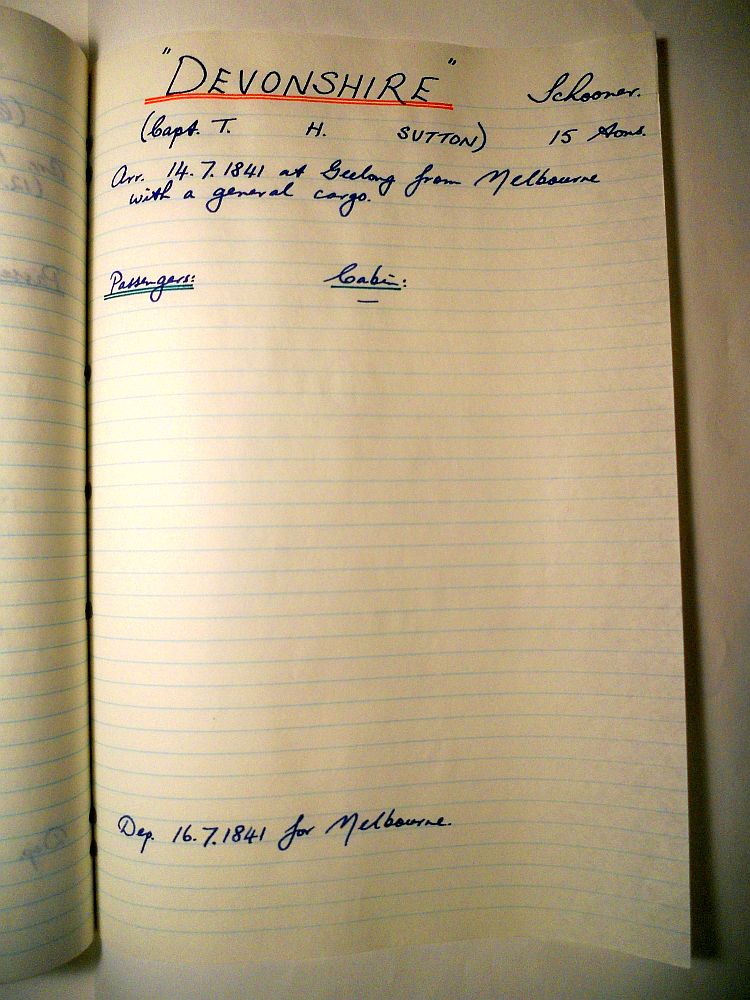 "DEVONSHIRE" Schooner.
(Capt. T. H. SUTTON) 15 tons.
Arr. 14.7.1841 at Geelong from Melbourne
with a general cargo.
Passengers: Cabin:
—
Dep. 16.7.1841 for Melbourne.